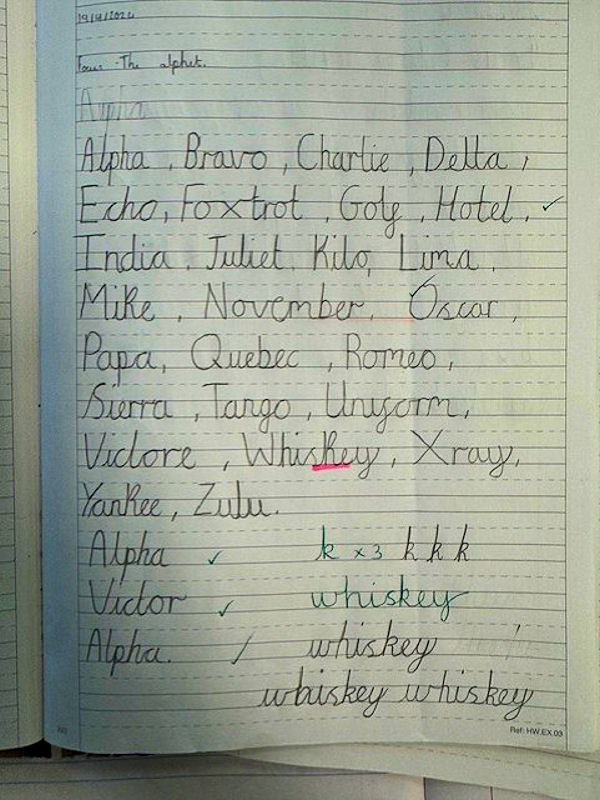 19/11/2024
Focus - The alphet.
Alpha
Alpha, Bravo, Charlie, Delta,
Echo, Foxtrot, Golf, Hotel,
India, Juliet, Kilo, Lima,
Mike, November, Oscar,
Papa, Quebec, Romeo,
Sierra, Tango, Uniform,
Victore, Whiskey, Xray,
Yankee, Zulu.
Alpha ✓ k x3 k k k
Victor ✓ whiskey
Alpha. ✓ whiskey
whiskey whiskey
Ref: HW.EX.03